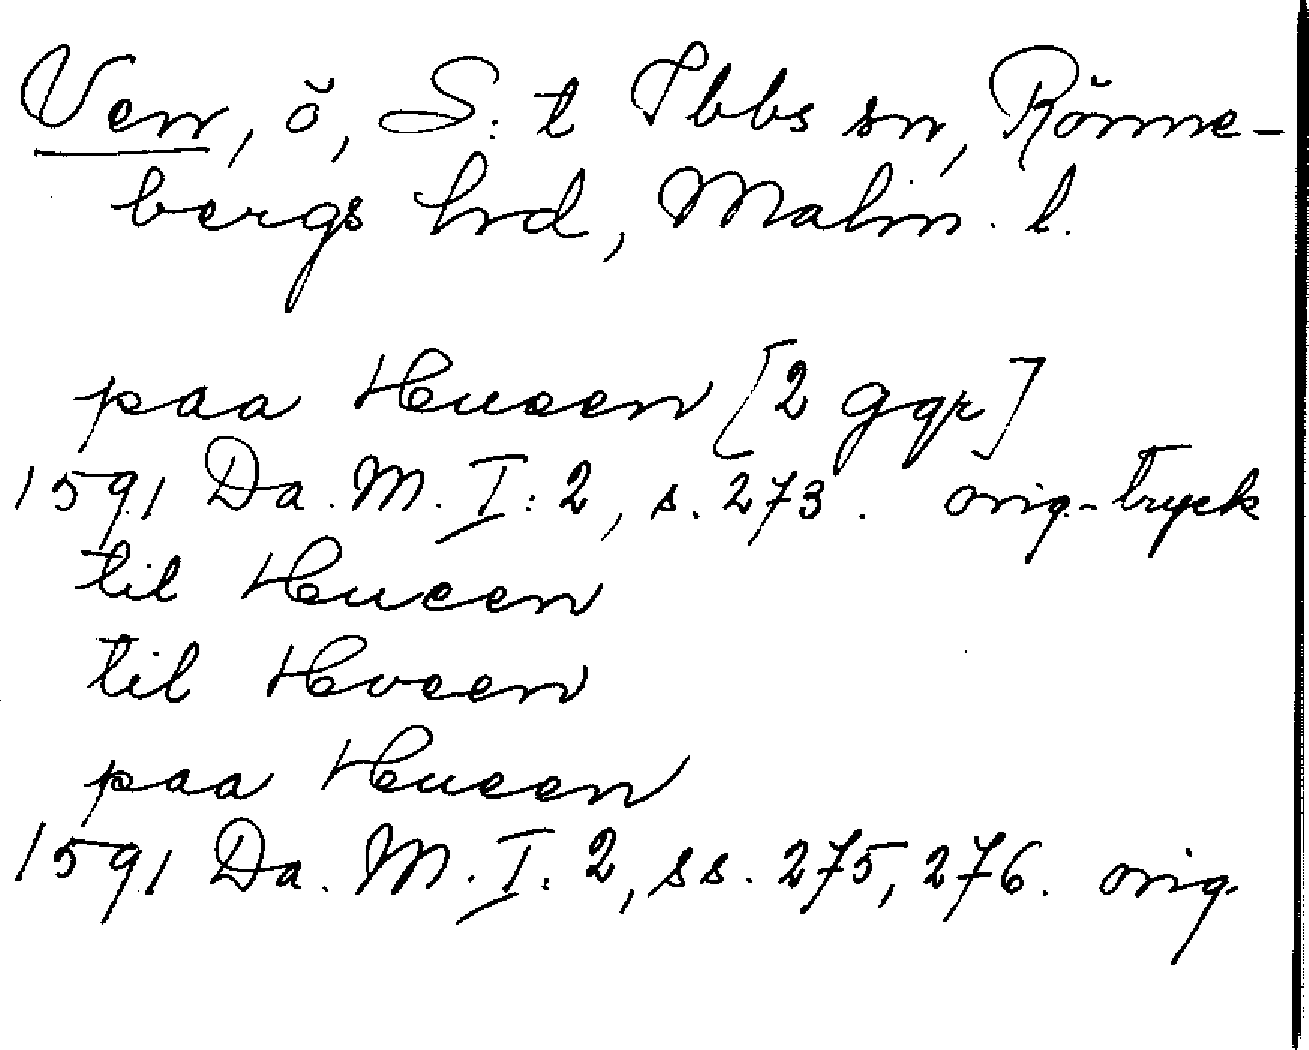 Ven, ö, S:t Ibbs sn, Rönne-
bergs hrd, Malm. l.
paa Hueen [2 ggr]
1591 Da. M. I: 2, s. 273. orig.-tryck
til Hueen
til Hveen
paa Hueen
1591 Da. M. I. 2, ss. 275, 276. orig.